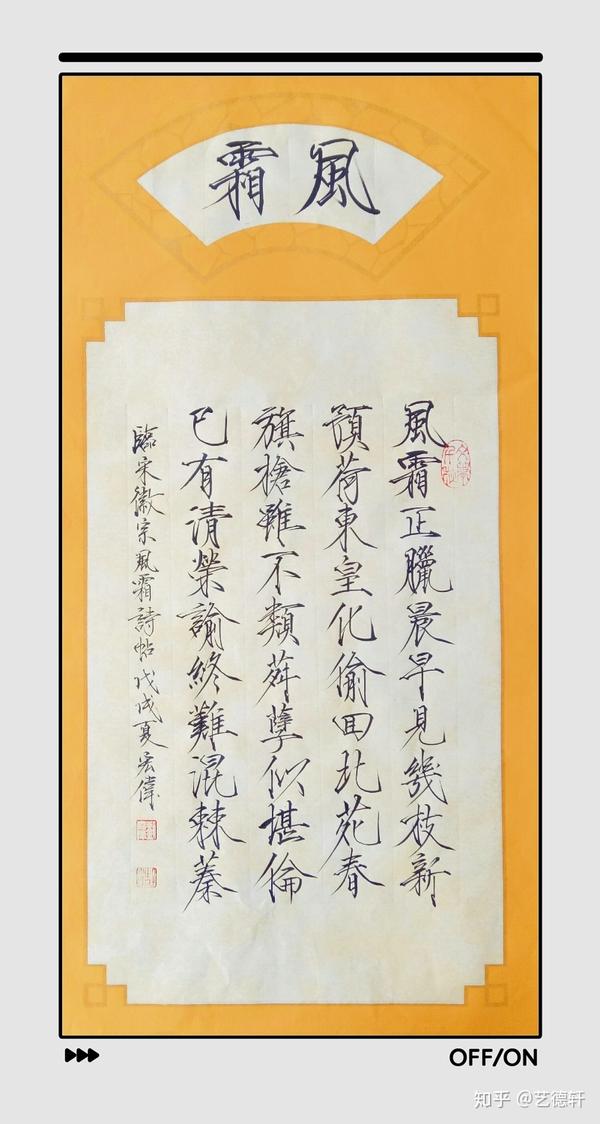 風霜
風霜正臘晨早見幾枝新
預荷東皇化偷回北苑春
旗槍雖不類荈孽似堪倫
已有清榮諭終難混棘蓁
臨宋徽宗風霜詩帖戊戌夏宏偉
OFF/ON
知乎 @艺德轩